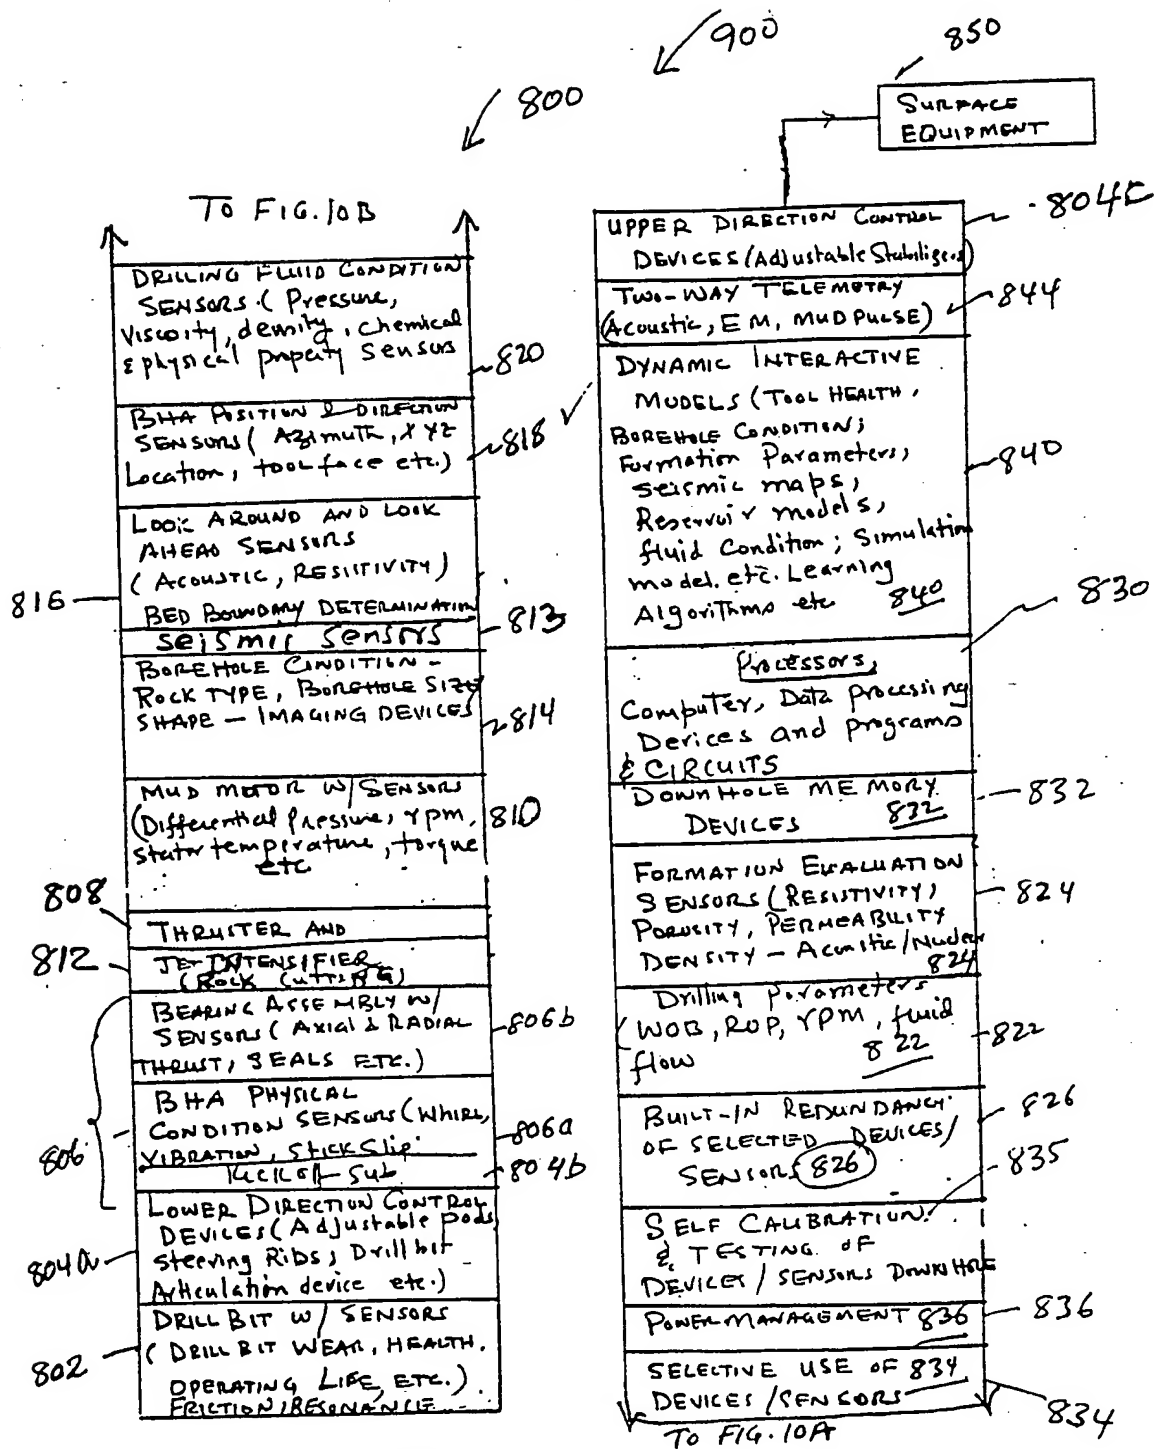 900
850
800
SURFACE
EQUIPMENT
TO FIG. 10B
DRILLING FLUID CONDITION
SENSORS (Pressure,
Viscosity, density, chemical
& physical property Sensors
820
BHA POSITION & DIRECTION
SENSORS (Azimuth, XYZ
Location, tool face etc.)
818
LOOK AROUND AND LOOK
AHEAD SENSORS
(ACOUSTIC, RESISTIVITY)
BED BOUNDARY DETERMINATION
816
Seismic Sensors
813
BOREHOLE CONDITION -
ROCK TYPE, BOREHOLE SIZE
SHAPE - IMAGING DEVICES
814
MUD MOTOR W/ SENSORS
(Differential Pressure, rpm,
stator temperature, torque
etc
810
808
THRUSTER AND
812
JET INTENSIFIER
(ROCK CUTTING)
BEARING ASSEMBLY W/
SENSORS (AXIAL & RADIAL
THRUST, SEALS ETC.)
806b
BHA PHYSICAL
CONDITION SENSORS (WHIRL,
VIBRATION, STICK SLIP
806a
806
KICKOFF SUB
804b
LOWER DIRECTION CONTROL
DEVICES (Adjustable Pads
Steering Ribs, Drill bit
Articulation device etc.)
804a
DRILL BIT W/ SENSORS
(DRILL BIT WEAR, HEALTH,
OPERATING LIFE, ETC.)
FRICTION, RESONANCE
802
UPPER DIRECTION CONTROL
DEVICES (Adjustable Stabilizers)
804c
TWO-WAY TELEMETRY
(Acoustic, EM, MUD PULSE)
844
DYNAMIC INTERACTIVE
MODELS (TOOL HEALTH,
BOREHOLE CONDITION;
Formation Parameters,
Seismic maps,
Reservoir models,
fluid Condition; Simulation
model. etc. Learning
Algorithms etc 840
840
830
Processors,
Computer, Data processing
Devices and programs
& CIRCUITS
DOWNHOLE MEMORY
DEVICES 832
832
FORMATION EVALUATION
SENSORS (RESISTIVITY,
POROSITY, PERMEABILITY
DENSITY - Acoustic/Nuclear
824
824
Drilling Parameters
(WOB, ROP, rpm, fluid
flow 822
822
BUILT-IN REDUNDANCY
OF SELECTED DEVICES/
SENSORS 826
826
835
SELF CALIBRATION
& TESTING OF
DEVICES / SENSORS DOWNHOLE
POWER MANAGEMENT 836
836
SELECTIVE USE OF 834
DEVICES / SENSORS
834
TO FIG. 10A